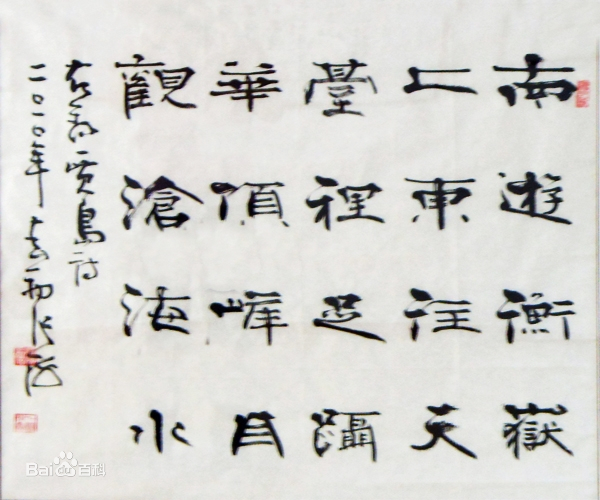 南遊衡嶽
上東往天
臺裡足躡
華頂峰目
觀滄海水
右 賈島詩
二〇一〇年
Bai du 百科